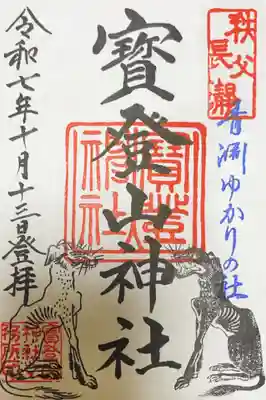 秩父
長瀞
青淵ゆかりの社
寳登山神社
寳登山
神社
令和七年十月十三日登拝